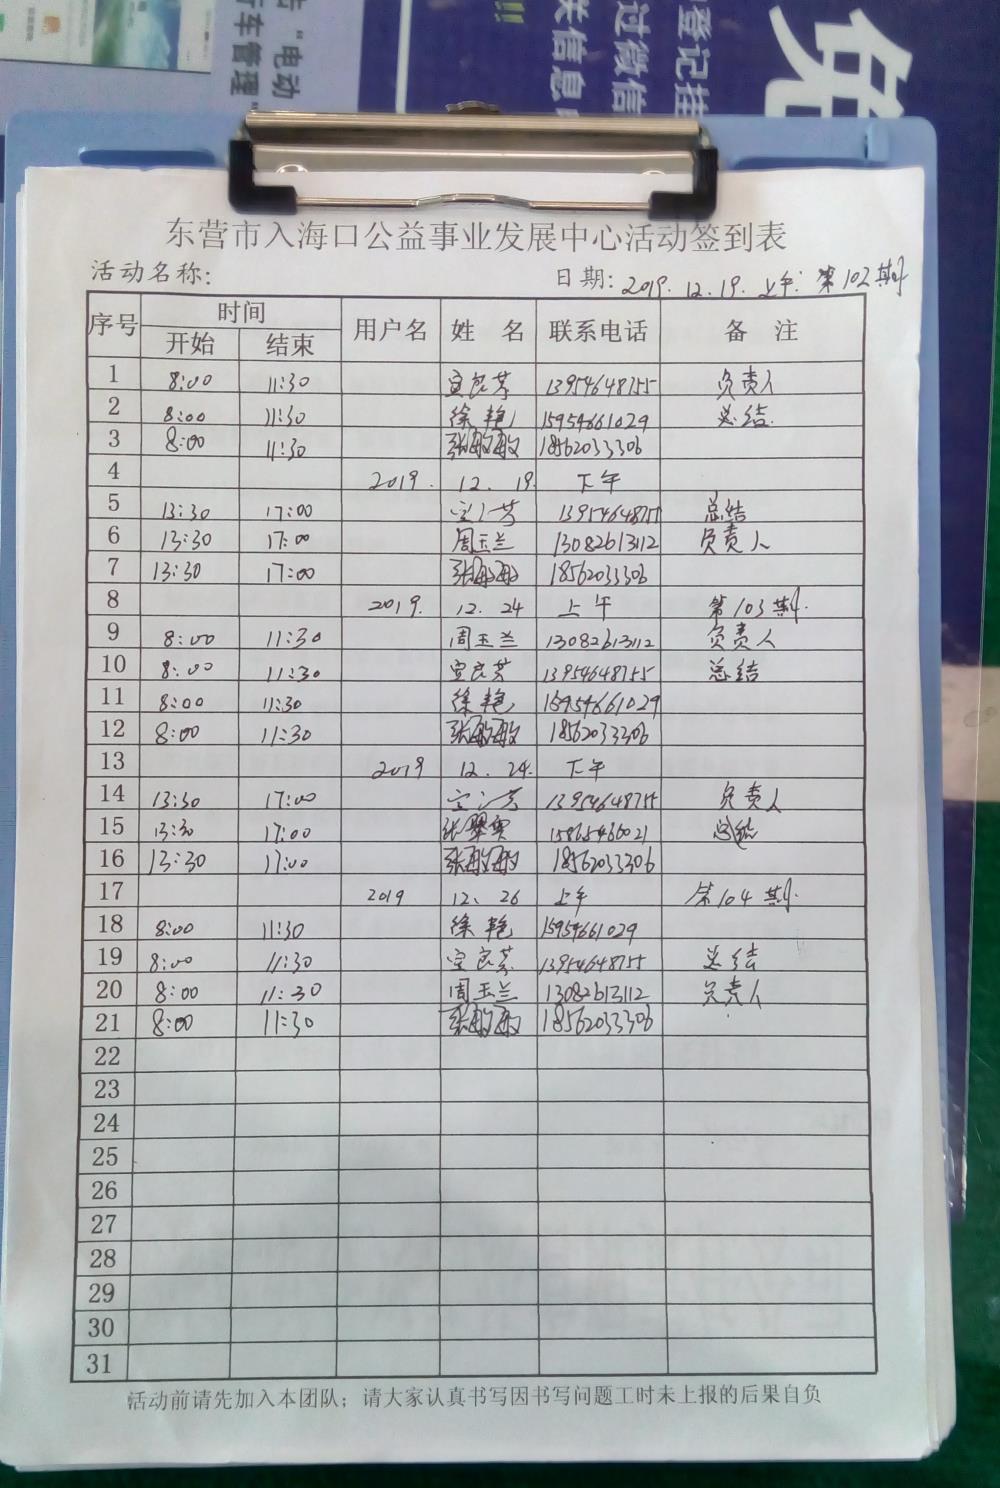 吉"电动
行车管理"
免
登记描
过微信
关信息
东营市入海口公益事业发展中心活动签到表
活动名称: 日期: 2019. 12. 19. 上午: 第102期
序号 时间 用户名 姓 名 联系电话 备 注
开始 结束
1 8:00 11:30 宜良芳 13954648755 负责人
2 8:00 11:30 徐艳 15954661029 总结.
3 8:00 11:30 张敏敏 18562033306
4 2019. 12. 19. 下午
5 13:30 17:00 13954648755 总结
6 13:30 17:00 周玉兰 13082613112 负责人
7 13:30 17:00 张敏敏 18562033306
8 2019. 12. 24 上午 第103期.
9 8:00 11:30 周玉兰 13082613112 负责人
10 8:00 11:30 宜良芳 13954648755 总结
11 8:00 11:30 徐艳 15954661029
12 8:00 11:30 张敏敏 18562033306
13 2019 12. 24. 下午
14 13:30 17:00 13954648755 负责人
15 13:30 17:00 15865466021 总结
16 13:30 17:00 张敏敏 18562033306
17 2019 12. 26 上午 第104期.
18 8:00 11:30 徐艳 15954661029
19 8:00 11:30 宜良芳 13954648755 总结
20 8:00 11:30 周玉兰 13082613112 负责人
21 8:00 11:30 张敏敏 18562033306
22
23
24
25
26
27
28
29
30
31
活动前请先加入本团队；请大家认真书写因书写问题工时未上报的后果自负